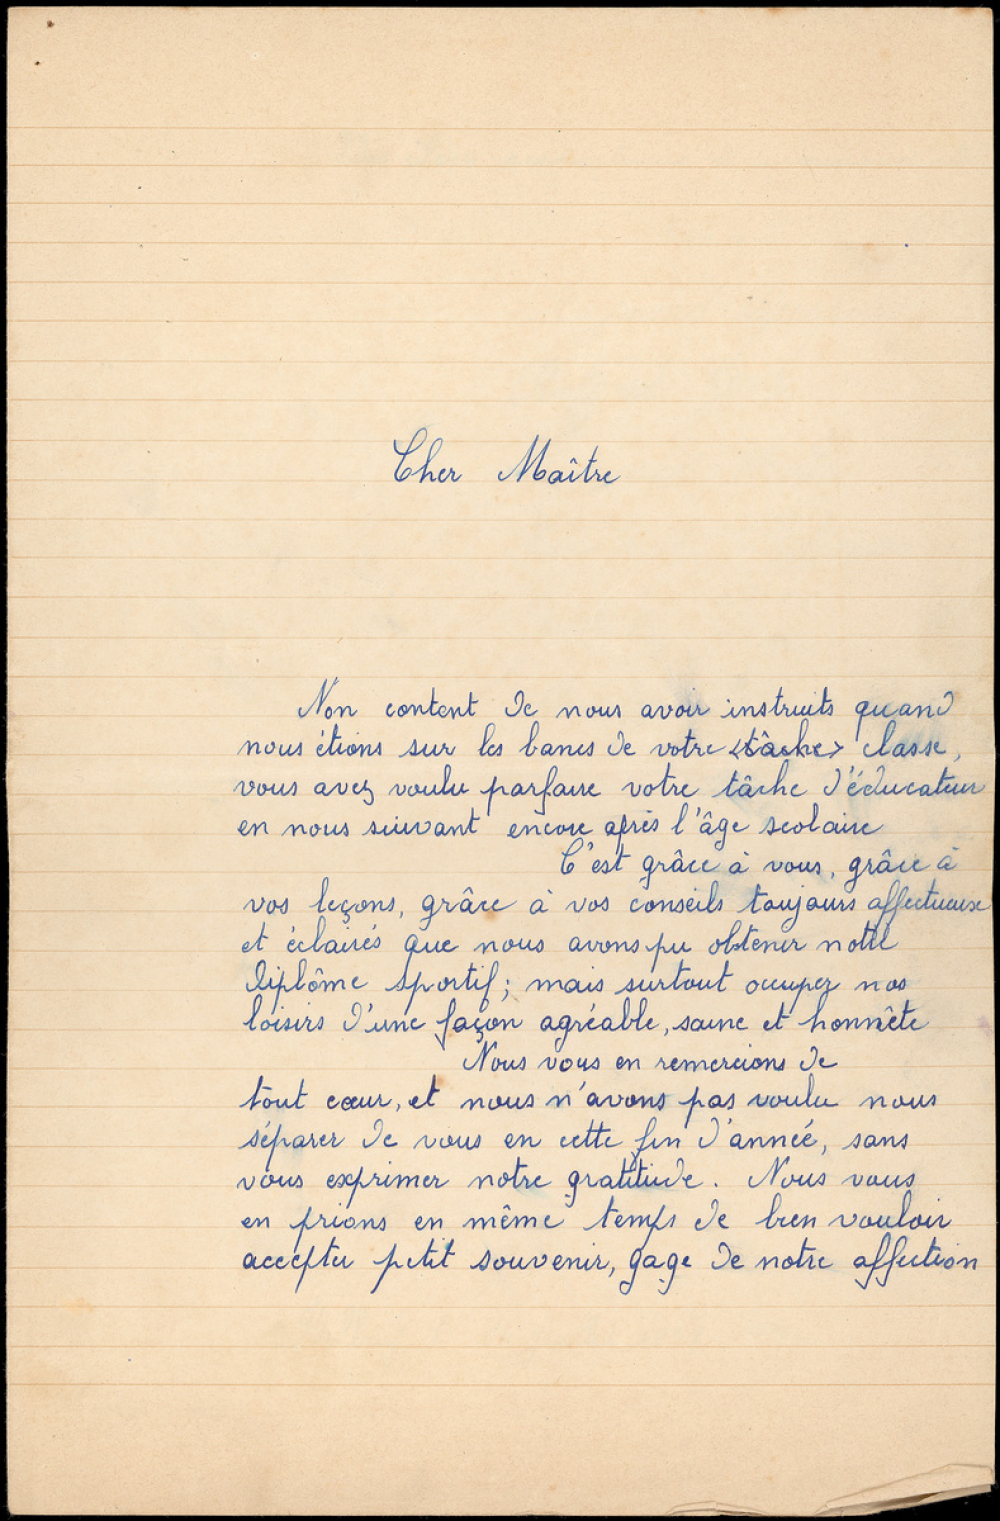 Cher Maître
Non content de nous avoir instruits quand
nous étions sur les bancs de votre <tâche> classe,
vous avez voulu parfaire votre tâche d'éducateur
en nous suivant encore après l'âge scolaire
C'est grâce à vous, grâce à
vos leçons, grâce à vos conseils toujours affectueux
et éclairés que nous avons pu obtenir notre
diplôme sportif; mais surtout occuper nos
loisirs d'une façon agréable, saine et honnête
Nous vous en remercions de
tout cœur, et nous n'avons pas voulu nous
séparer de vous en cette fin d'année, sans
vous exprimer notre gratitude. Nous vous
en prions en même temps de bien vouloir
accepter petit souvenir, gage de notre affection